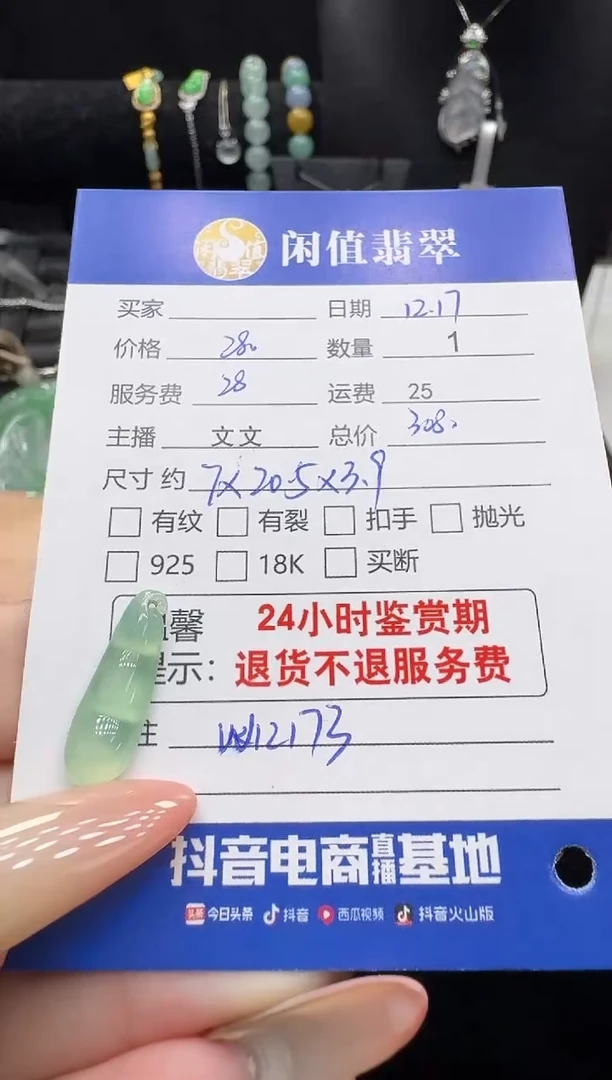 闲值翡翠
闲值翡翠
买家 日期 12.17
价格 280 数量 1
服务费 28 运费 25
主播 文文 总价 308.
尺寸 约 7×20.5×3.9
有纹 有裂 扣手 抛光
925 18K 买断
馨 24小时鉴赏期
示: 退货不退服务费
注 W12173
抖音电商直播基地
头条 今日头条 抖音 西瓜视频 抖音火山版